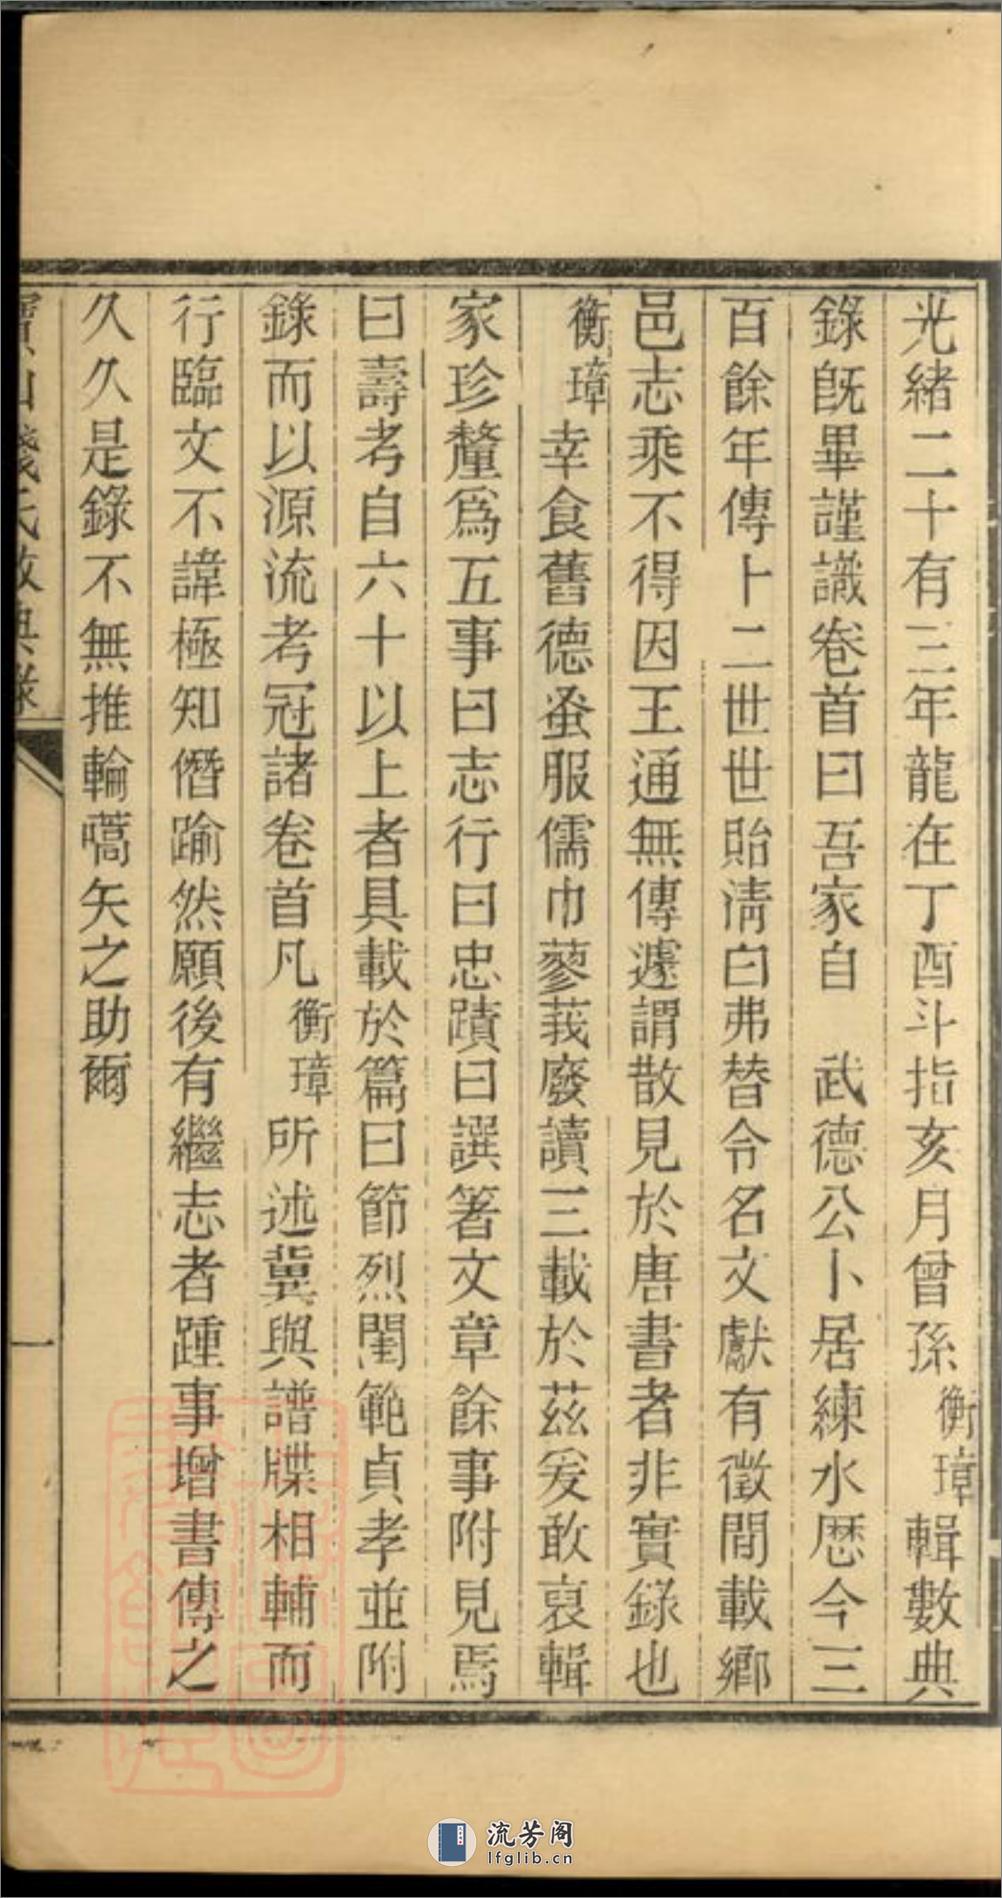 光緒二十有三年龍在丁酉斗指亥月曾孫衡璋輯數典
錄旣畢謹識卷首曰吾家自　武德公卜居練水歷今三
百餘年傳十二世世貽淸白弗替令名文獻有徵間載鄉
邑志乘不得因王通無傳遽謂散見於唐書者非實錄也
衡璋幸食舊德蚤服儒巾蓼莪廢讀三載於茲爰敢裒輯
家珍釐爲五事曰志行曰忠蹟曰譔箸文章餘事附見焉
曰壽考自六十以上者具載於篇曰節烈閨範貞孝並附
錄而以源流考冠諸卷首凡衡璋所述冀與譜牒相輔而
行臨文不諱極知僭踰然願後有繼志者踵事增書傳之
久久是錄不無推輪嚆矢之助爾
寶山錢氏數典錄
一
流芳阁
lfglib.cn